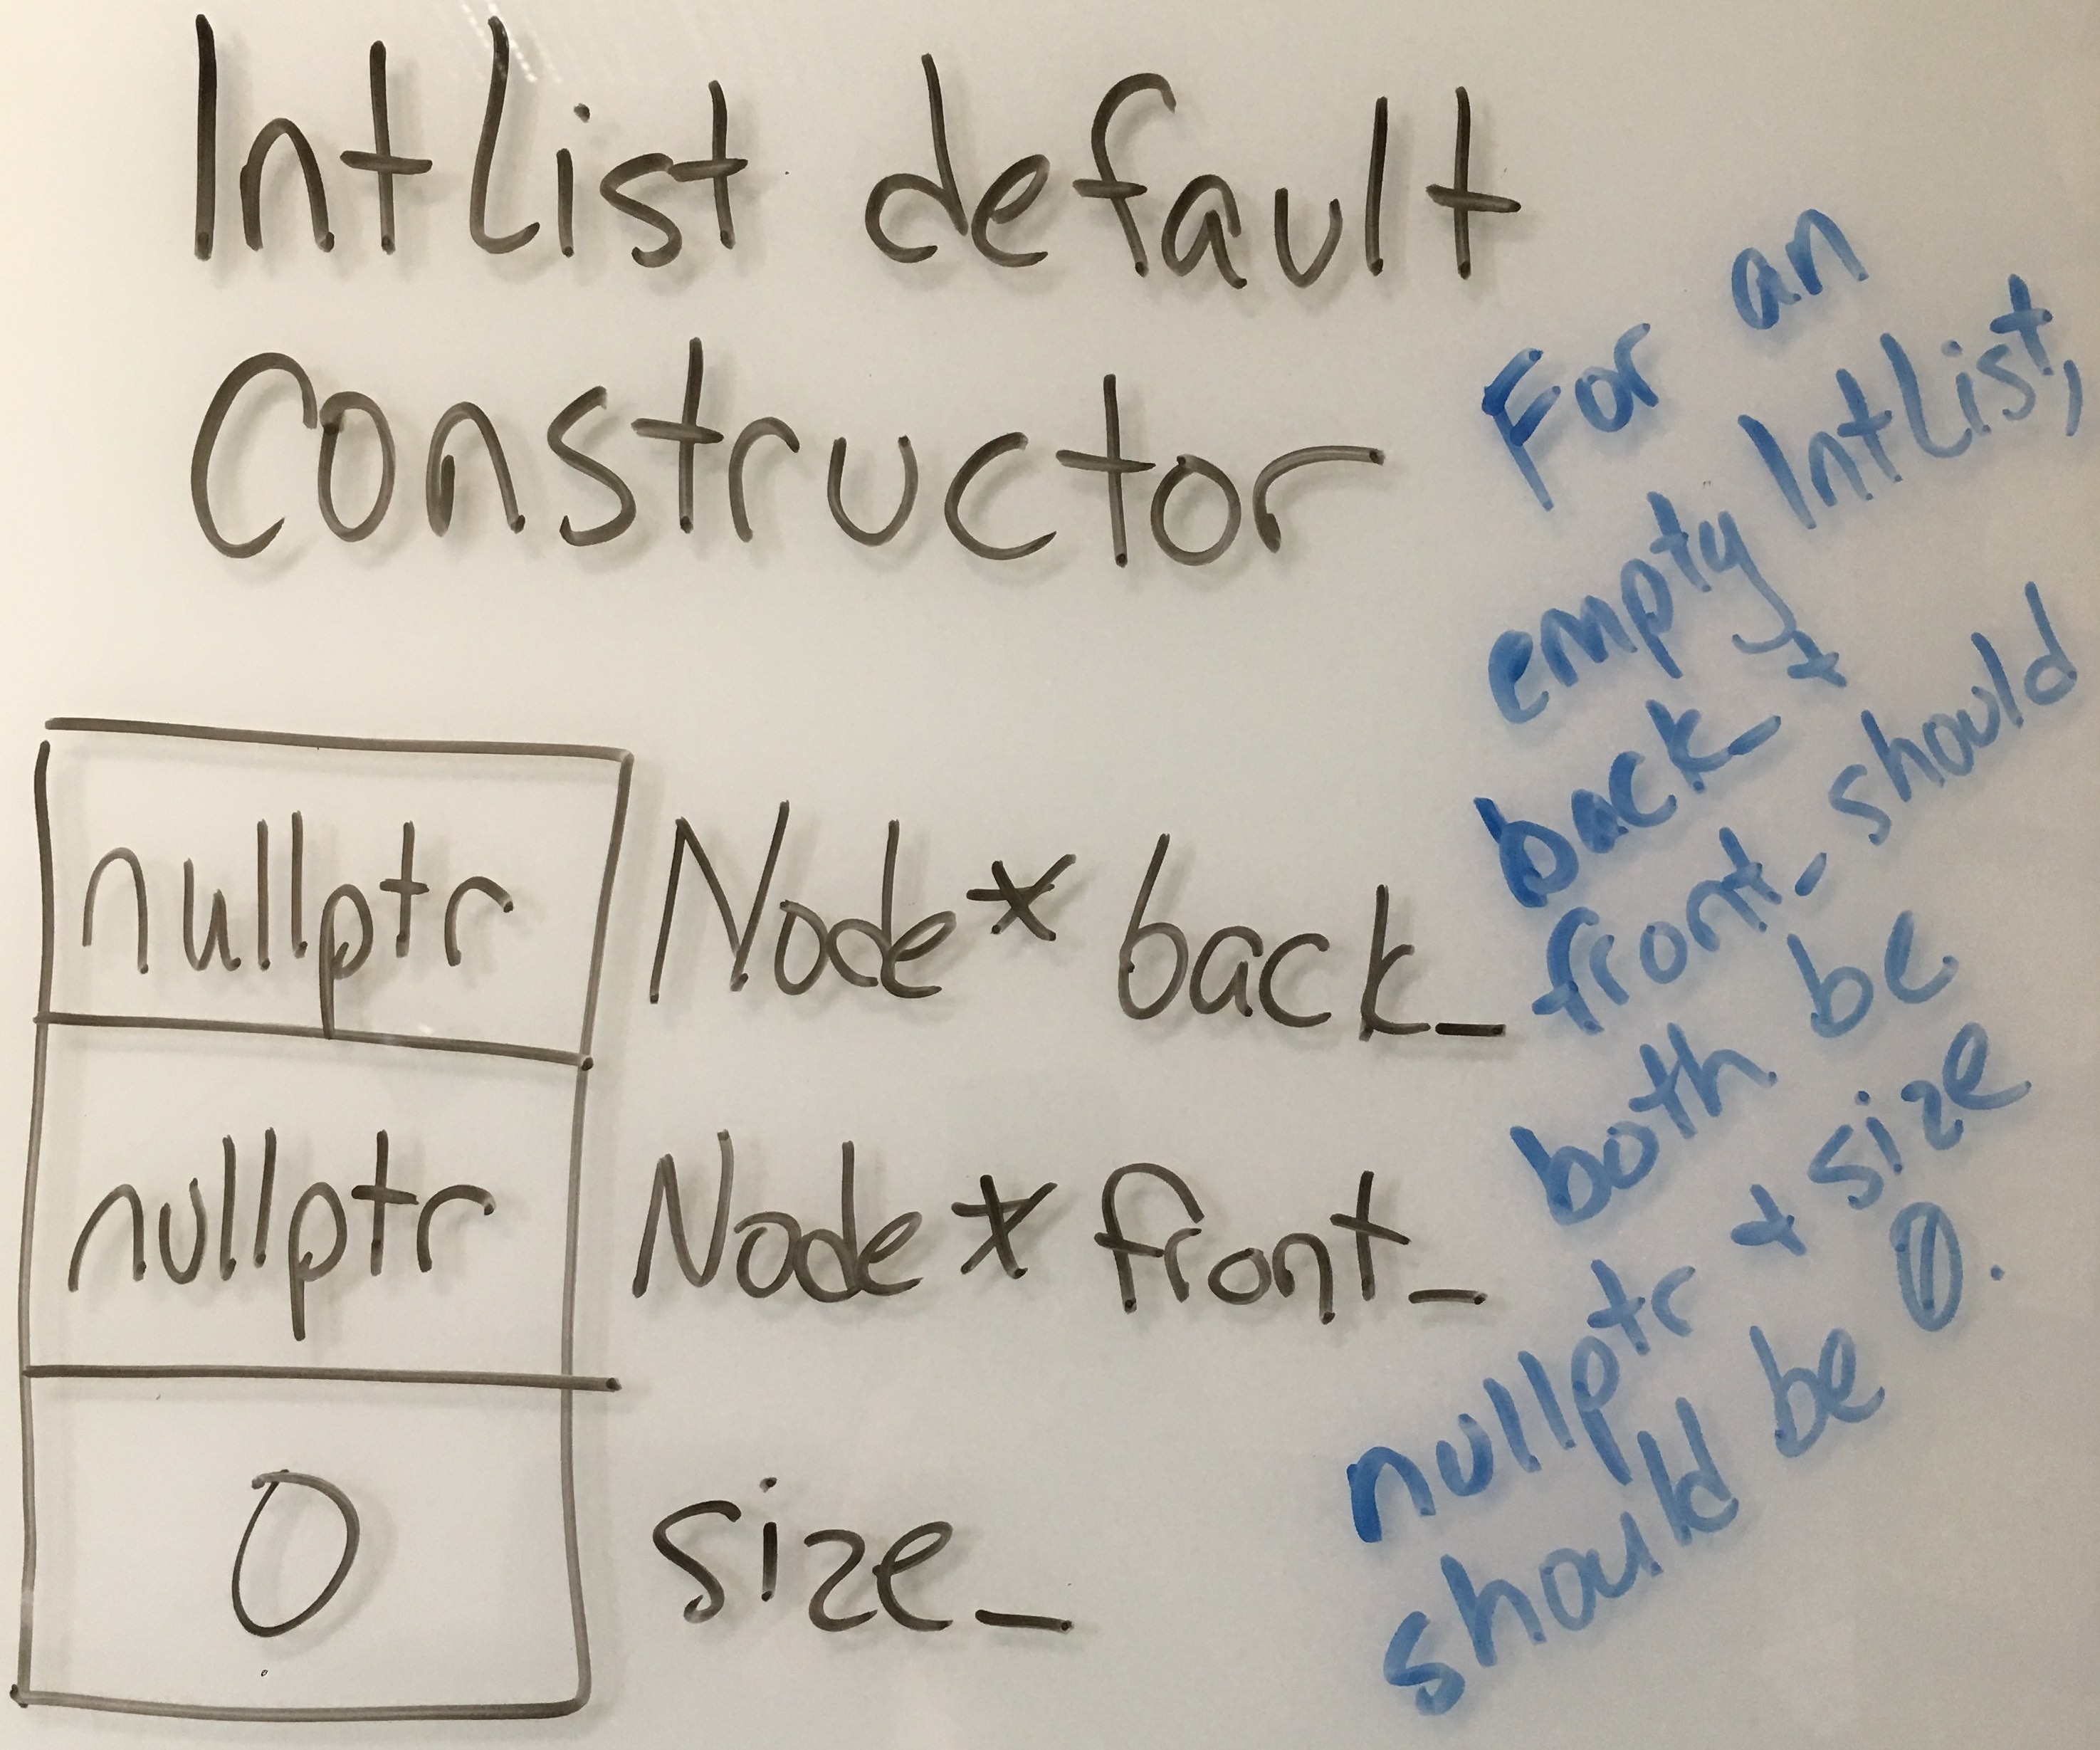 IntList default
Constructor
nullptr Node* back_
nullptr Node* front_
0 size_
For an
empty IntList,
back_ +
front_ should
both be
nullptr + size
should be 0.